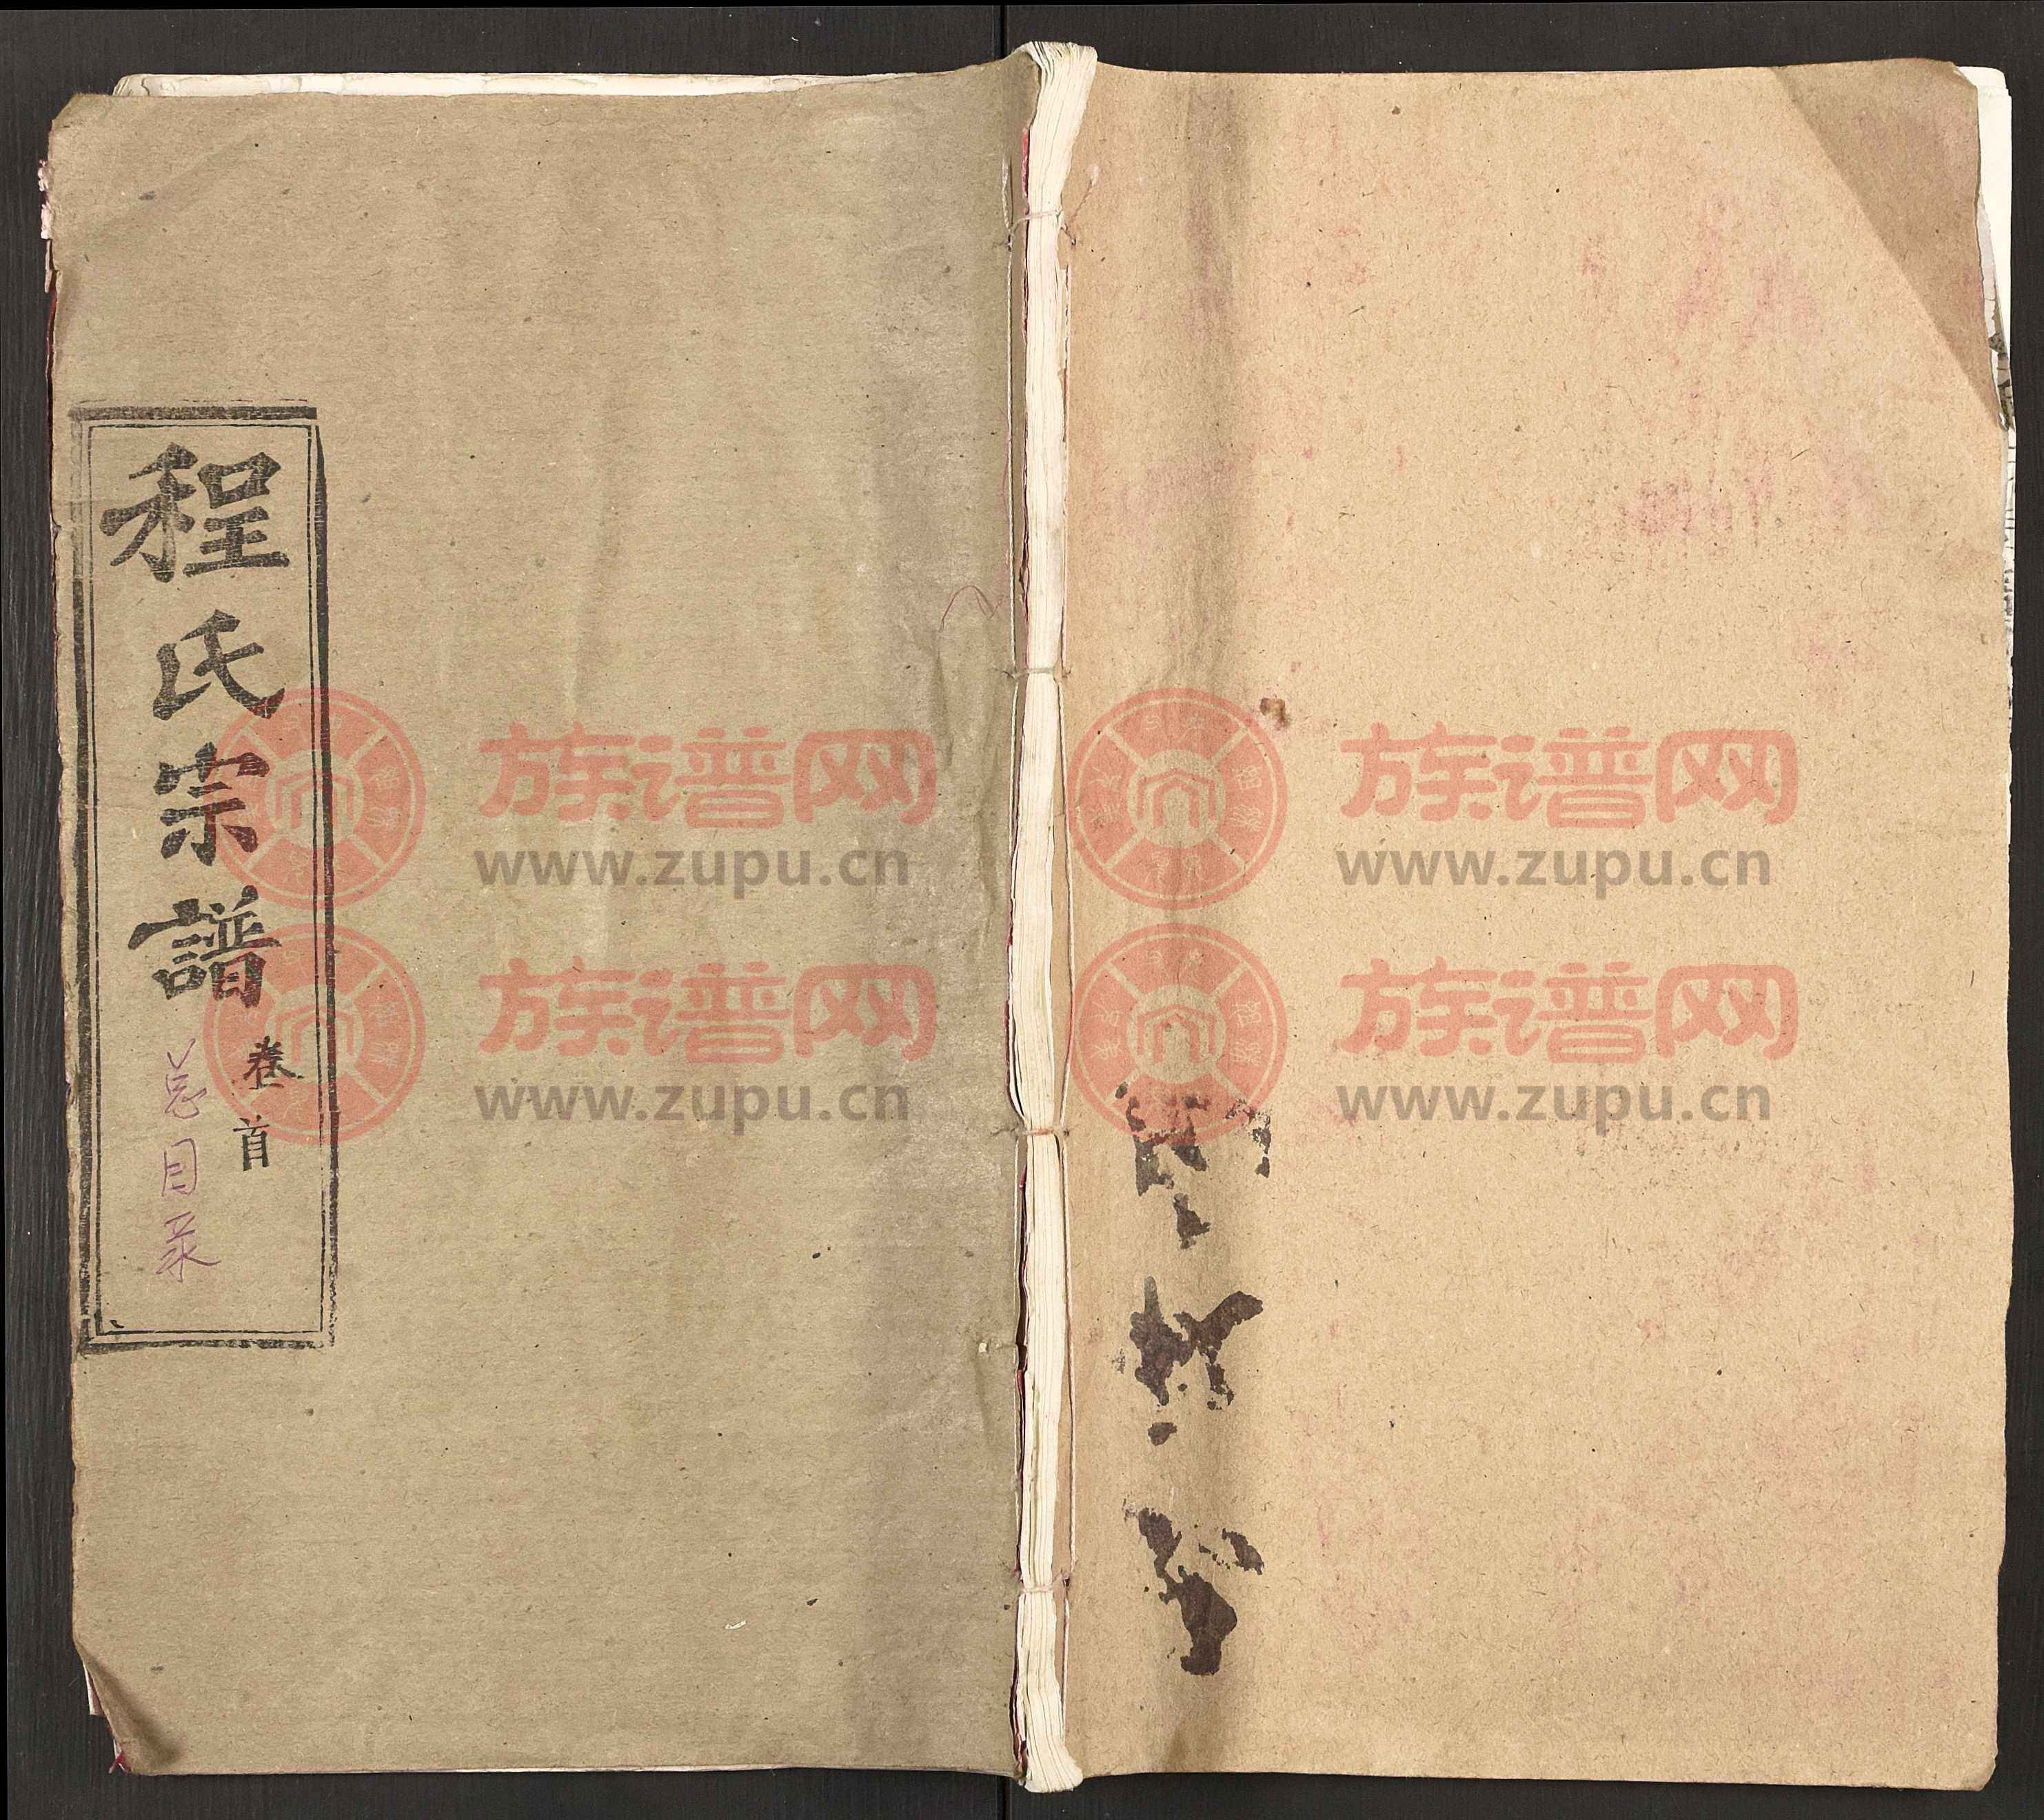 程氏宗譜
卷首
总目录
族谱网
www.zupu.cn
族谱网
www.zupu.cn
族谱网
www.zupu.cn
族谱网
www.zupu.cn